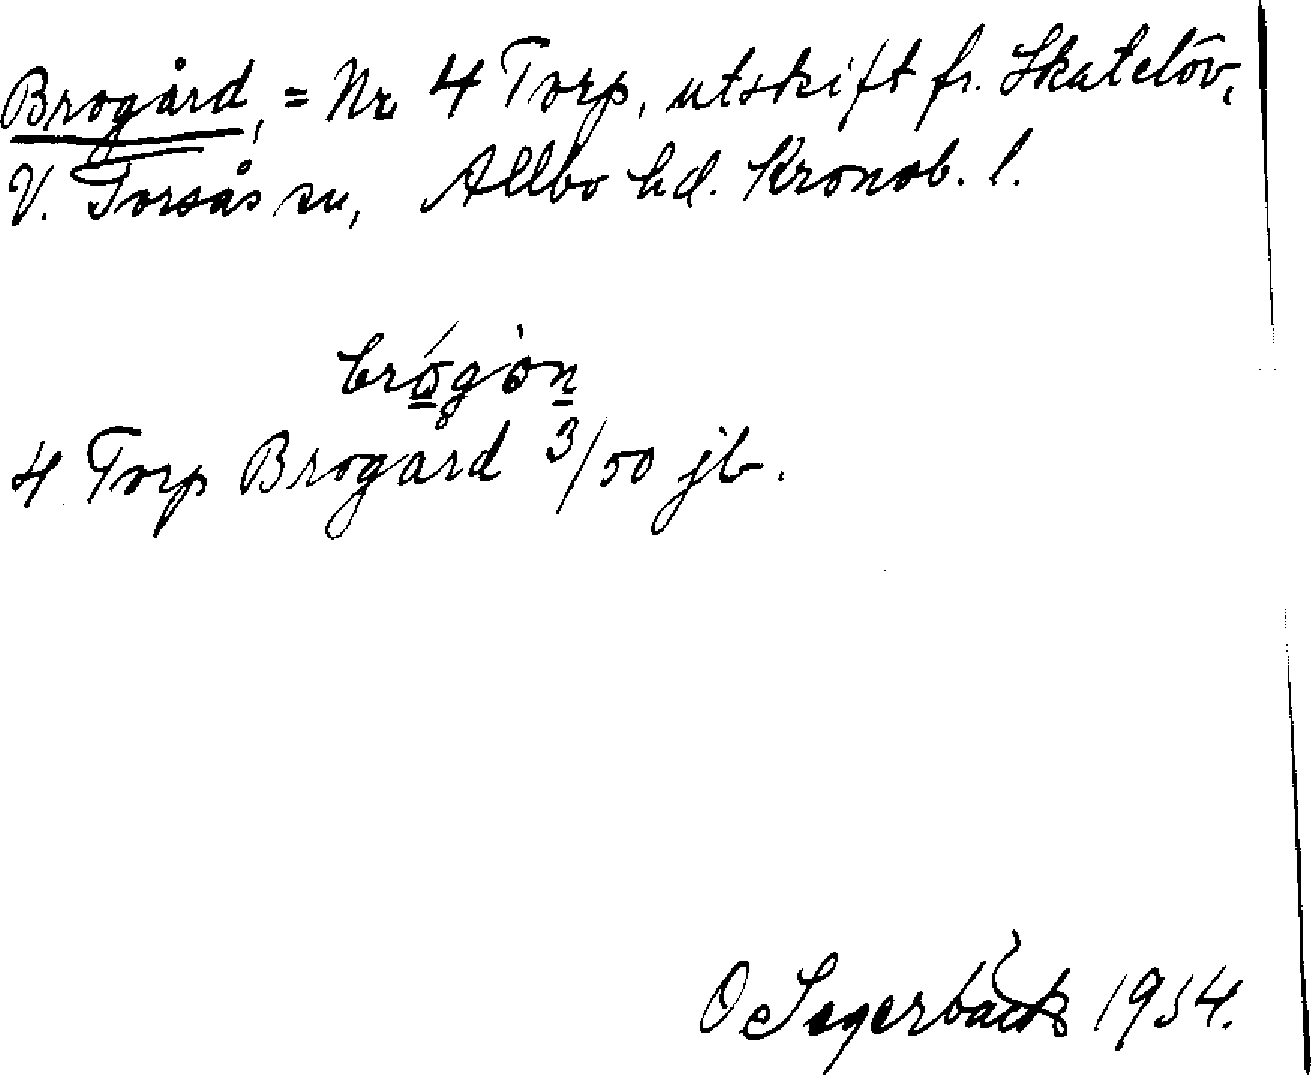 Brogård, = Nr. 4 Torp, utskift fr. Skatelöv,
V. Torsås sn, Allbo hd. Kronob. l.
brógòn
4 Torp Brogård 3/50 jb.
O Segerbäck 1954.